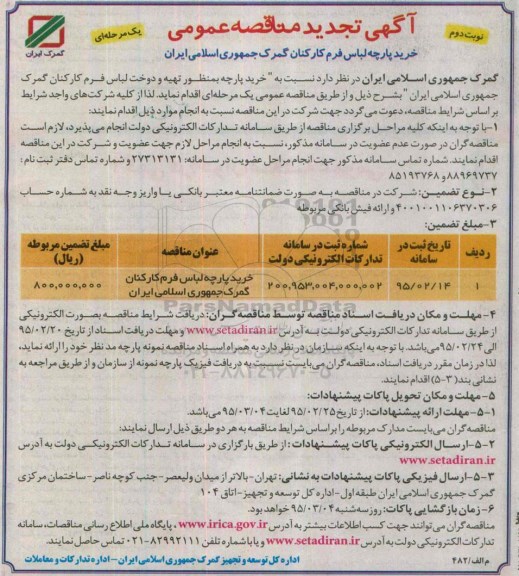 آگهی تجدید مناقصه عمومی
نوبت دوم
یک مرحله‌ای
گمرک ایران
خرید پارچه لباس فرم کارکنان گمرک جمهوری اسلامی ایران
گمرک جمهوری اسلامی ایران در نظر دارد نسبت به " خرید پارچه بمنظور تهیه و دوخت لباس فرم کارکنان گمرک
جمهوری اسلامی ایران " بشرح ذیل و از طریق مناقصه عمومی یک مرحله‌ای اقدام نماید. لذا از کلیه شرکت‌های واجد شرایط
بر اساس شرایط مناقصه، دعوت می گردد جهت شرکت در این مناقصه نسبت به انجام موارد ذیل اقدام نمایند:
۱-با توجه به اینکه کلیه مراحل برگزاری مناقصه از طریق سامانه تدارکات الکترونیکی دولت انجام می‌پذیرد، لازم است
مناقصه گران در صورت عدم عضویت در سامانه مذکور، نسبت به انجام مراحل لازم جهت عضویت و شرکت در این مناقصه
اقدام نمایند. شماره تماس سامانه مذکور جهت انجام مراحل عضویت در سامانه: ۲۷۳۱۳۱۳۱ و شماره تماس دفتر ثبت نام :
۸۸۹۶۹۷۳۷ و ۸۵۱۹۳۷۶۸
۲-نوع تضمین: شرکت در مناقصه به صورت ضمانتنامه معتبر بانکی یا واریز وجه نقد به شماره حساب
۴۰۰۱۰۰۱۱۰۶۳۷۰۳۰۶ و ارائه فیش بانکی مربوطه
۳-مبلغ تضمین:
ردیف | تاریخ ثبت در سامانه | شماره ثبت در سامانه تدارکات الکترونیکی دولت | عنوان مناقصه | مبلغ تضمین مربوطه (ریال)
۱ | ۹۵/۰۲/۱۴ | ۲۰۰,۹۵۳,۰۰۴,۰۰۰,۰۰۲ | خرید پارچه لباس فرم کارکنان گمرک جمهوری اسلامی ایران | ۸۰۰,۰۰۰,۰۰۰
ParsNamadData
۰۲۱-۸۸۳۴۹۶۷۰-۵
۴- مهلت و مکان دریافت اسناد مناقصه توسط مناقصه گران: دریافت شرایط مناقصه بصورت الکترونیکی
از طریق سامانه تدارکات الکترونیکی دولت به آدرس www.setadiran.ir و مهلت دریافت اسناد از تاریخ ۹۵/۰۲/۲۰
الی ۹۵/۰۲/۲۴ می‌باشد. با توجه به اینکه سازمان در نظر دارد به همراه اسناد مناقصه نمونه پارچه مد نظر خود را ارائه نماید،
لذا در زمان مقرر دریافت اسناد، مناقصه گران می‌بایست نسبت به دریافت فیزیک پارچه نمونه از سازمان و از طریق مراجعه به
نشانی بند (۳-۵) اقدام نمایند.
۵-مهلت و مکان تحویل پاکات پیشنهادات:
۵-۱-مهلت ارائه پیشنهادات: از تاریخ ۹۵/۰۲/۲۵ لغایت ۹۵/۰۳/۰۴ می‌باشد.
مناقصه گران می‌بایست مدارک مربوطه را بر اساس شرایط مناقصه به هر دو طریق ذیل ارسال نمایند:
۵-۲-ارسال الکترونیکی پاکات پیشنهادات : از طریق بارگزاری در سامانه تدارکات الکترونیکی دولت به آدرس
www.setadiran.ir
۵-۳-ارسال فیزیکی پاکات پیشنهادات به نشانی: تهران-بالاتر از میدان ولیعصر-جنب کوچه ناصر-ساختمان مرکزی
گمرک جمهوری اسلامی ایران طبقه اول-اداره کل توسعه و تجهیز-اتاق ۱۰۴
۶-زمان بازگشایی پاکات: روز سه شنبه ۹۵/۰۳/۰۴ خواهد بود.
مناقصه گران می‌توانند جهت کسب اطلاعات بیشتر به آدرس www.irica.gov.ir ، پایگاه ملی اطلاع رسانی مناقصات، سامانه
تدارکات الکترونیکی دولت به آدرس www.setadiran.ir و یا با شماره تلفن ۸۲۹۹۲۱۱۱-۰۲۱ تماس حاصل نمایند.
م الف/۴۸۲
اداره کل توسعه و تجهیز گمرک جمهوری اسلامی ایران-اداره تدارکات و معاملات